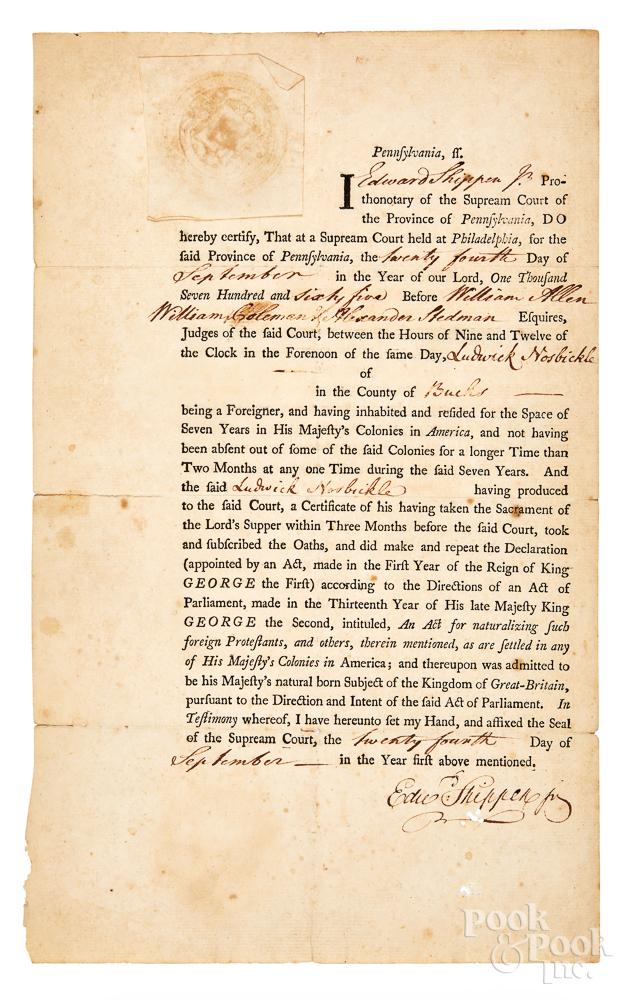 Pennſylvania, ſſ.
I Edward Shippen Jr. Pro-
thonotary of the Supream Court of
the Province of Pennſylvania, DO
hereby certify, That at a Supream Court held at Philadelphia, for the
ſaid Province of Pennſylvania, the twenty fourth Day of
September in the Year of our Lord, One Thouſand
Seven Hundred and sixty five Before William Allen
William Coleman & Alexander Stedman Eſquires,
Judges of the ſaid Court, between the Hours of Nine and Twelve of
the Clock in the Forenoon of the ſame Day, Ludwick Nosbickle
of
in the County of Bucks
being a Foreigner, and having inhabited and reſided for the Space of
Seven Years in His Majeſty's Colonies in America, and not having
been abſent out of ſome of the ſaid Colonies for a longer Time than
Two Months at any one Time during the ſaid Seven Years. And
the ſaid Ludwick Nosbickle having produced
to the ſaid Court, a Certificate of his having taken the Sacrament of
the Lord's Supper within Three Months before the ſaid Court, took
and ſubſcribed the Oaths, and did make and repeat the Declaration
(appointed by an Act, made in the Firſt Year of the Reign of King
GEORGE the Firſt) according to the Directions of an Act of
Parliament, made in the Thirteenth Year of His late Majeſty King
GEORGE the Second, intituled, An Act for naturalizing ſuch
foreign Proteſtants, and others, therein mentioned, as are ſettled in any
of His Majeſty's Colonies in America; and thereupon was admitted to
be his Majeſty's natural born Subject of the Kingdom of Great-Britain,
purſuant to the Direction and Intent of the ſaid Act of Parliament. In
Teſtimony whereof, I have hereunto ſet my Hand, and affixed the Seal
of the Supream Court, the twenty fourth Day of
September in the Year firſt above mentioned.
Edwd. Shippen jr
Pook
& Pook
Inc.